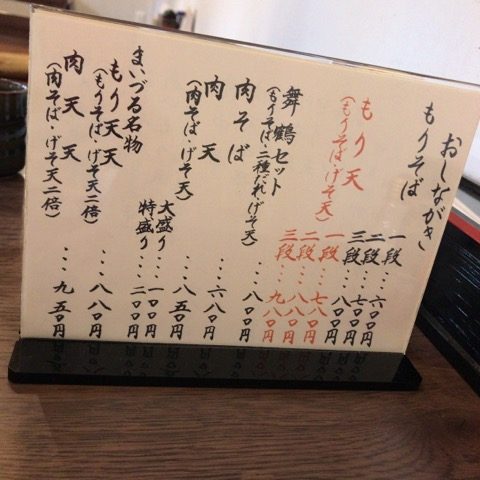 おしながき
もりそば
一段・・・六〇〇円
二段・・・七〇〇円
三段・・・八〇〇円
もり天
(もりそば・げそ天)
一段・・・七八〇円
二段・・・八八〇円
三段・・・九八〇円
舞鶴セット
(もりそば・二種だれ・げそ天)
・・・八〇〇円
肉そば
・・・六八〇円
肉天
(肉そば・げそ天)
・・・八五〇円
大盛り・・・一〇〇円
特盛り・・・二〇〇円
まいづる名物
もり天天
(もりそば・げそ天二倍)
・・・八八〇円
肉天天
(肉そば・げそ天二倍)
・・・九五〇円